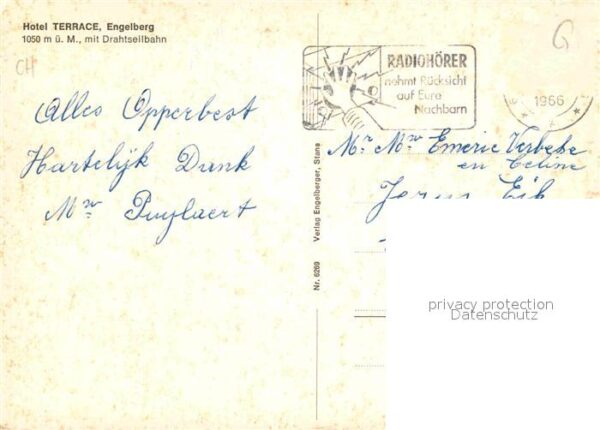 Hotel TERRACE, Engelberg
1050 m ü. M., mit Drahtseilbahn
CH
G
RADIOHÖRER
nehmt Rücksicht
auf Eure
Nachbarn
1966
Alles Opperbest
Hartelijk Dank
Mw Puylaert
Mr Mw Emeric Verbeke
en Celine
Nr. 6269 Verlag Engelberger, Stans
privacy protection
Datenschutz